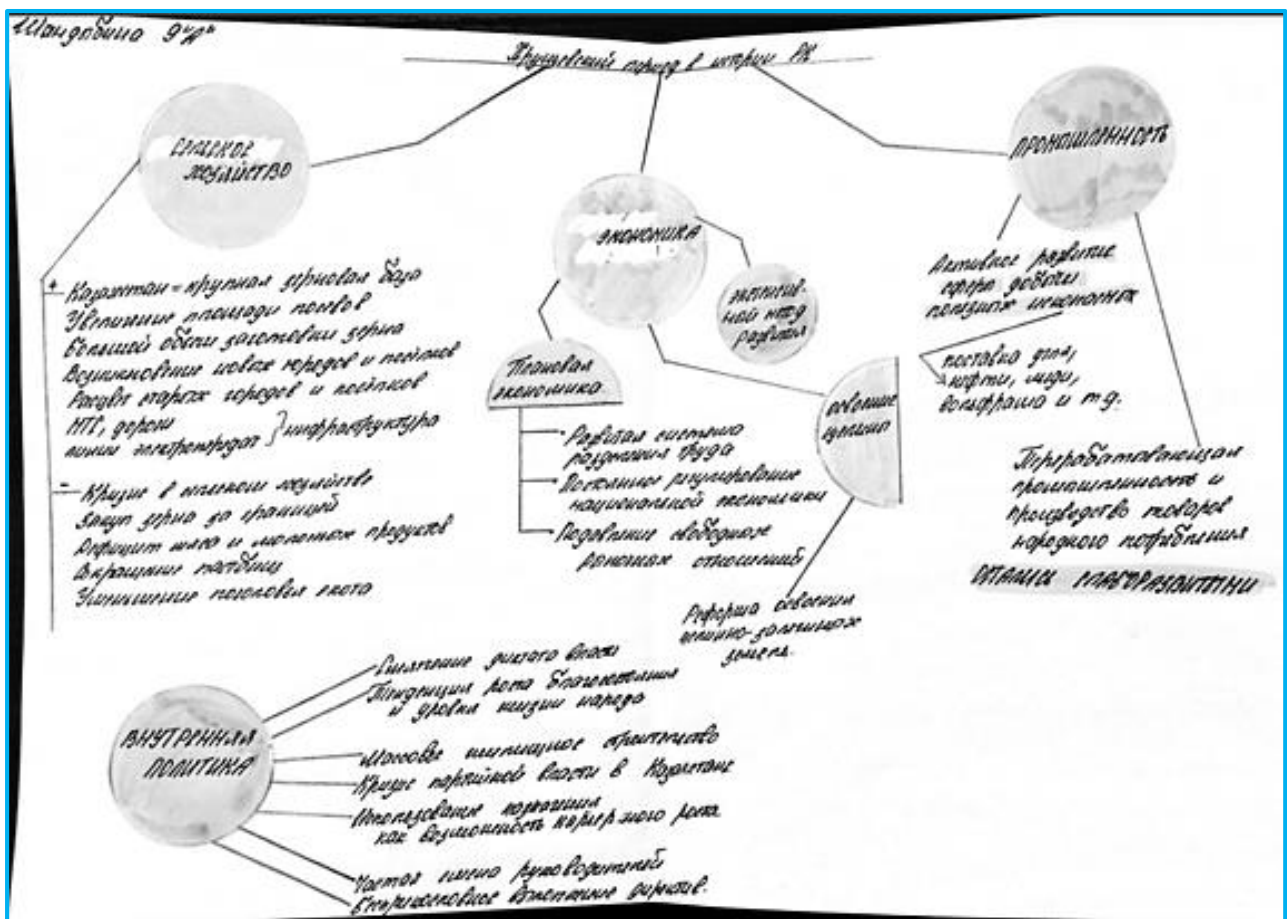 Шандыбина 9"А"
Хрущевский период в истории РК
СЕЛЬСКОЕ
ХОЗЯЙСТВО
+ Казахстан = крупная зерновая база
Увеличение площади посевов
Большой объем заготовки зерна
Возникновение новых городов и посёлков
Расцвет старых городов и посёлков
МТС, дороги
линии электропередач } инфраструктура
- Кризис в сельском хозяйстве
Закуп зерна за границей
Дефицит мяса и молочных продуктов
Сокращение пастбищ
Уменьшение поголовья скота
ЭКОНОМИКА
экстенсив-
ный метод
развития
Плановая
экономика
Развитая система
разделения труда
Постоянное регулирование
национальной экономики
Подавление свободных
рыночных отношений
освоение
целины
Реформа освоения
целинно-залежных
земель.
ПРОМЫШЛЕННОСТЬ
Активное развитие
сферы добычи
полезных ископаемых
поставка угля,
нефти, меди,
вольфрама и т.д.
Перерабатывающая
промышленность и
производство товаров
народного потребления
ОСТАЛИСЬ СЛАБОРАЗВИТЫМИ
ВНУТРЕННЯЯ
ПОЛИТИКА
Смягчение диктата власти
Тенденция роста благосостояния
и уровня жизни народа
Массовое жилищное строительство
Кризис партийной власти в Казахстане
Использование назначения
как возможность карьерного роста
Частая смена руководителей
Беспрекословное выполнение директив.